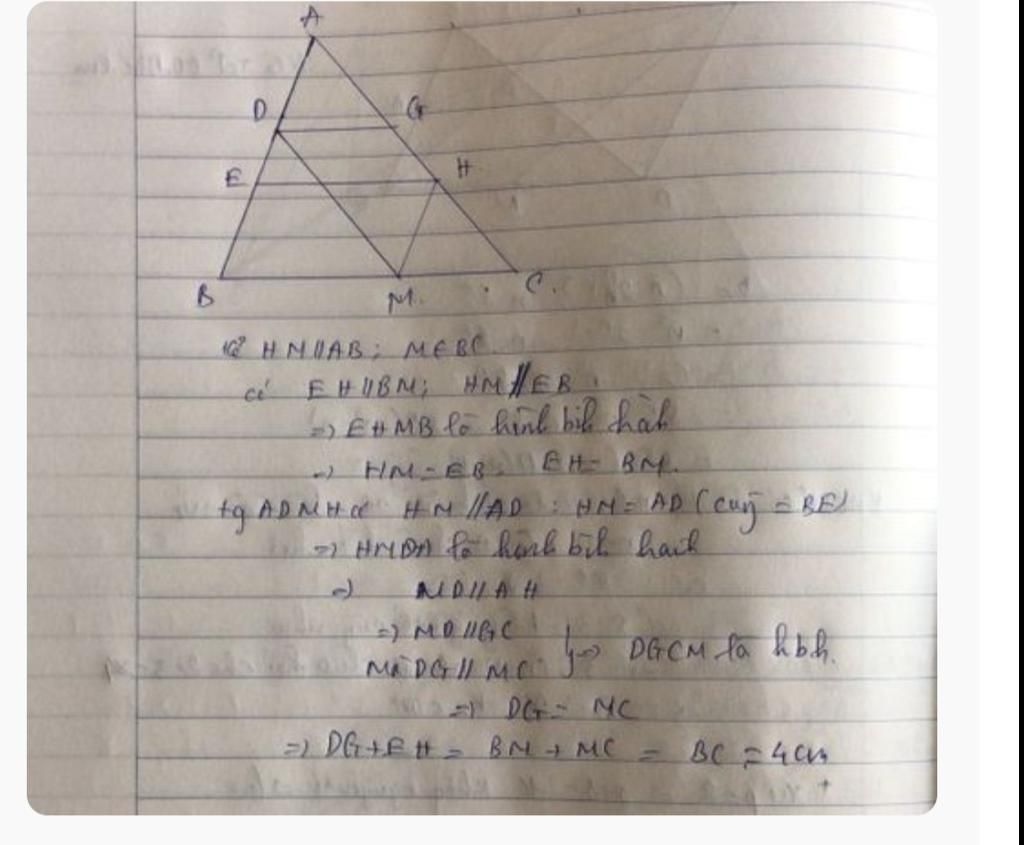 A
D
G
E
H
B
M.
C.
Kẻ HM//AB; M∈BC.
có EH//BM; HM//EB.
=> EHMB là hình bìh hàh
=> HM=EB. EH= BM.
tg ADMH có HM//AD : HM= AD (cùg = BE)
=> HMDA là hình bìh hàh
=> MD//AH
=> MD//GC
Mà DG// MC } => DGCM là hbh.
=> DG= MC
=> DG+EH = BM + MC = BC = 4cm